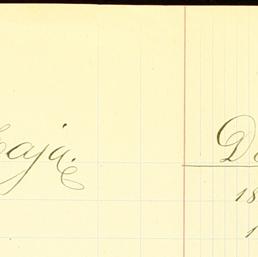 Caja.
D
18
1